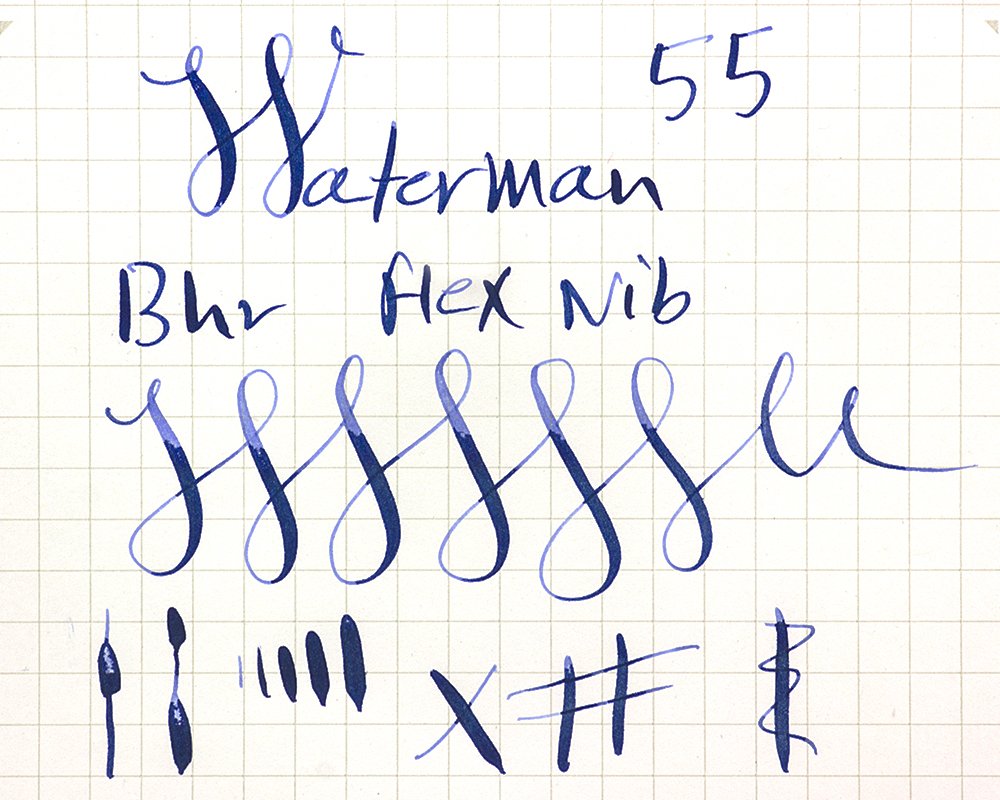 Waterman 55
Bhr flex Nib